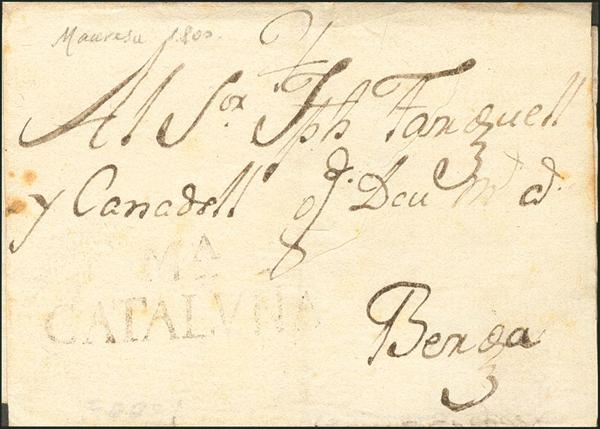 Manresa 1800.
Al Sor. Jph Farguell
y Canadell q. Deu m. a.
Mª
CATALVÑA
Berga